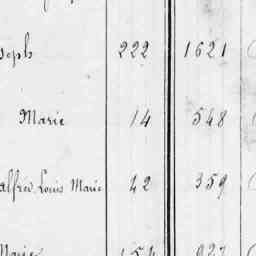 seph 222 1621
Marie 14 548
alfred Louis Marie 42 359
Marie 154 927